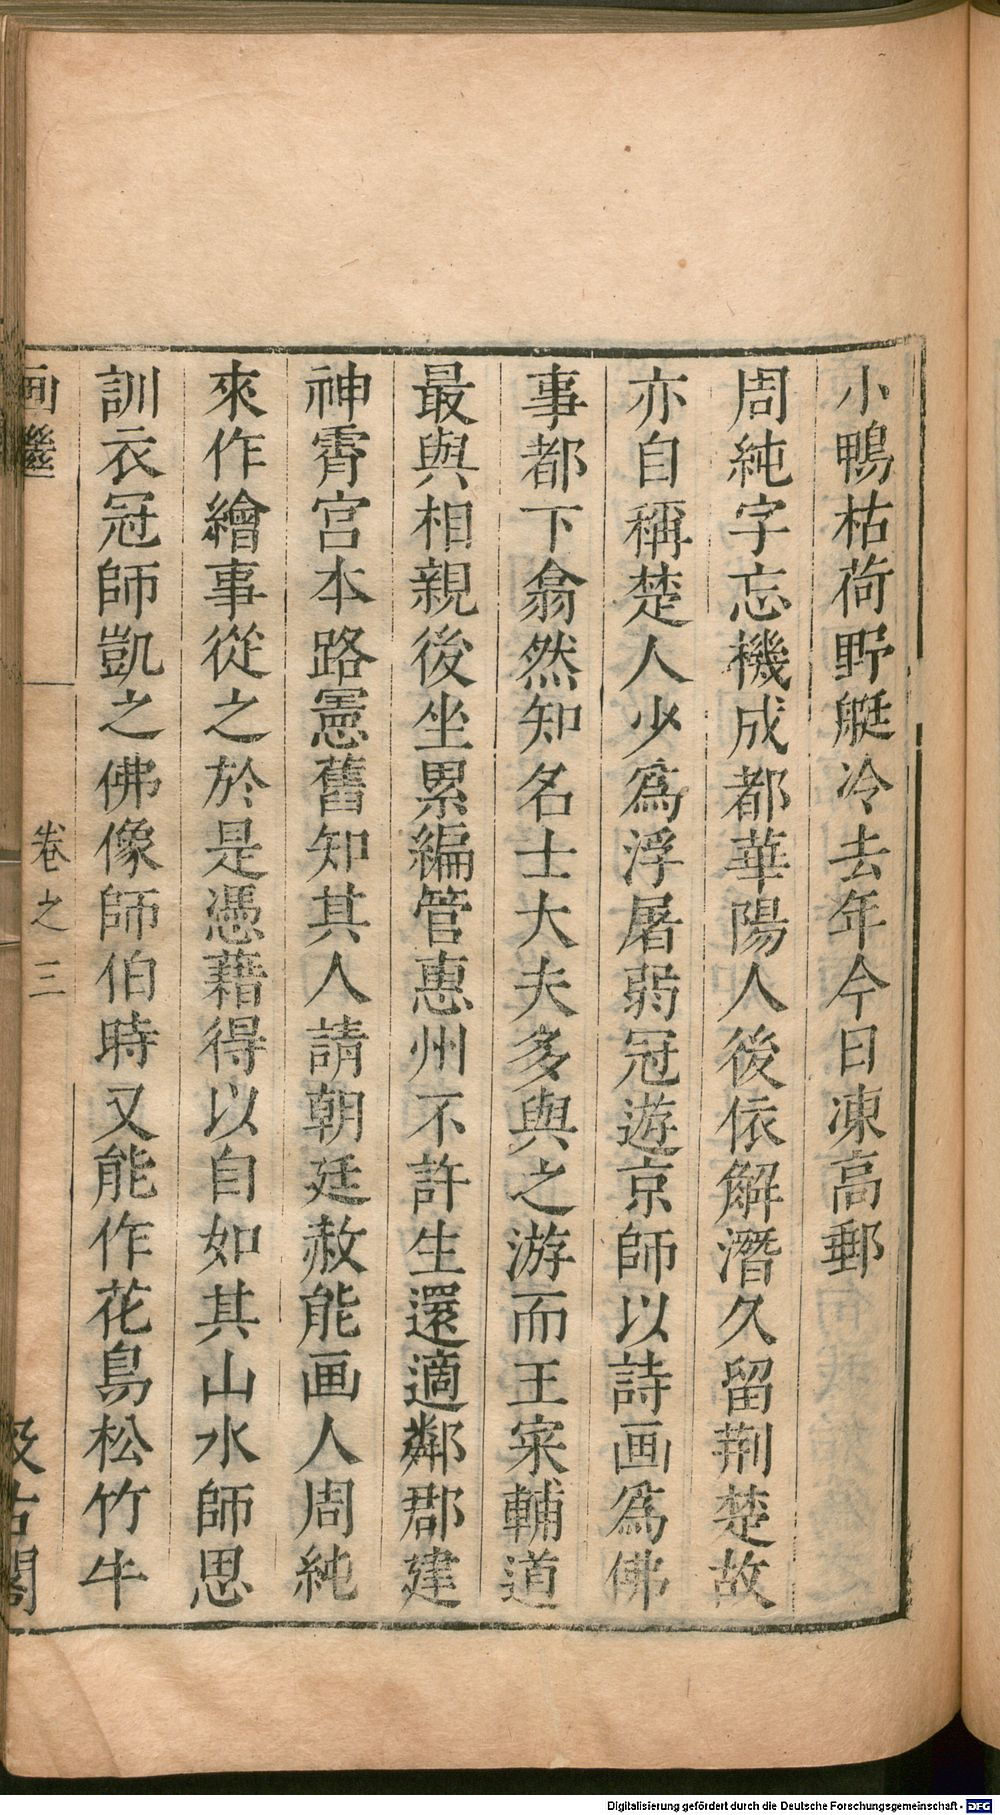 小鴨枯荷野艇冷去年今日凍高郵
周純字忘機成都華陽人後依解潛久留荆楚故
亦自稱楚人少爲浮屠弱冠遊京師以詩画爲佛
事都下翕然知名士大夫多與之游而王寀輔道
最與相親後坐累編管惠州不許生還適鄰郡建
神霄宮本路憲舊知其人請朝廷赦能画人周純
來作繪事從之於是憑藉得以自如其山水師思
訓衣冠師凱之佛像師伯時又能作花鳥松竹牛
画繼 卷之三 汲古閣
Digitalisierung gefördert durch die Deutsche Forschungsgemeinschaft - DFG